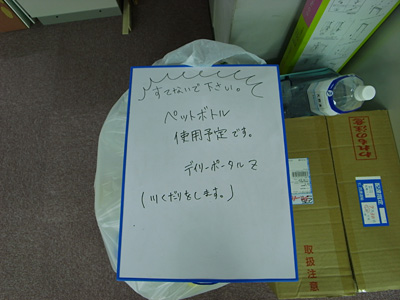 すてないで下さい。
ペットボトル
使用予定です。
デイリーポータルZ
(川くだりをします。)
われもの注意
取扱注意